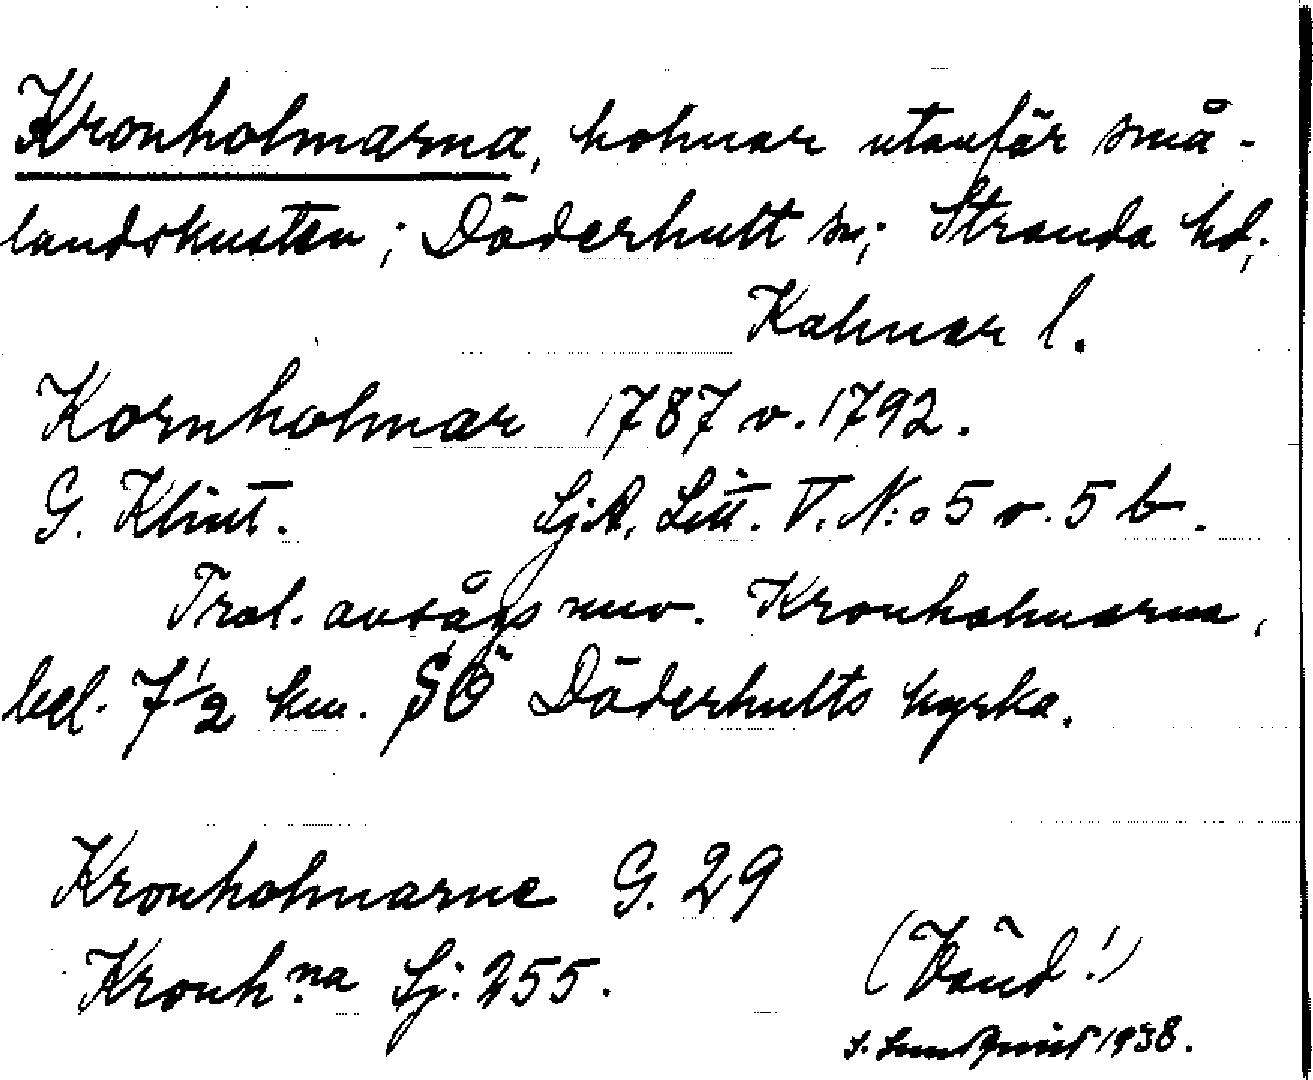 Kronholmarna, holmar utanför små-
landskusten; Döderhult sn; Stranda hd;
Kalmar l.
Kornholmar 1787 o. 1792.
G. Klint. SjA, Litt. V. N:o 5 o. 5 b.
Trol. avságs nuv. Kronholmarna,
bel. 7 1/2 km. SÖ Döderhults kyrka.
Kronholmarne G. 29
Kronh:na Sj: 255.
(Vänd!)
S. Lundquist 1938.